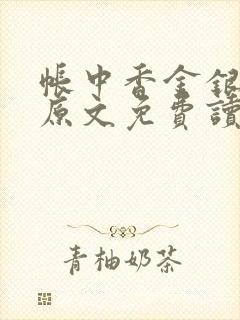 帳中香金銀
原文免費讀
青柚奶茶